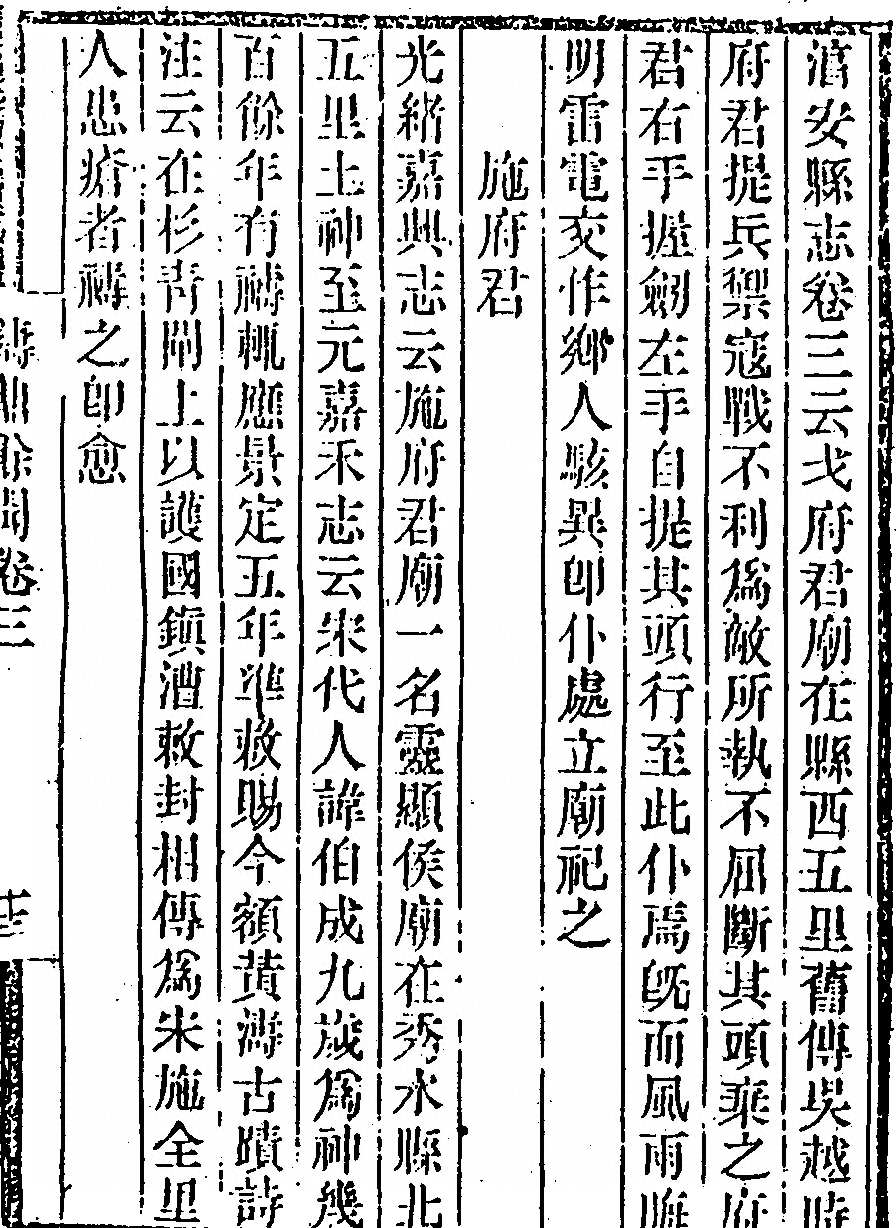 淯安縣志卷三云戈府君廟在縣西五里舊傳吳越時
府君提兵禦寇戰不利爲敵所執不屈斷其頭棄之府
君右手握劒左手自提其頭行至此仆焉旣而風雨晦
明雷電交作鄉人駭異卽仆處立廟祀之
施府君
光緒嘉興志云施府君廟一名靈顯侯廟在秀水縣北
五里土神至元嘉禾志云宋代人諱伯成九歲爲神幾
百餘年有禱輒應景定五年準敕賜今額黃濤古蹟詩
注云在杉靑閘上以護國鎭漕敕封相傳爲宋施全里
人患瘡者禱之卽愈
餘聞卷三